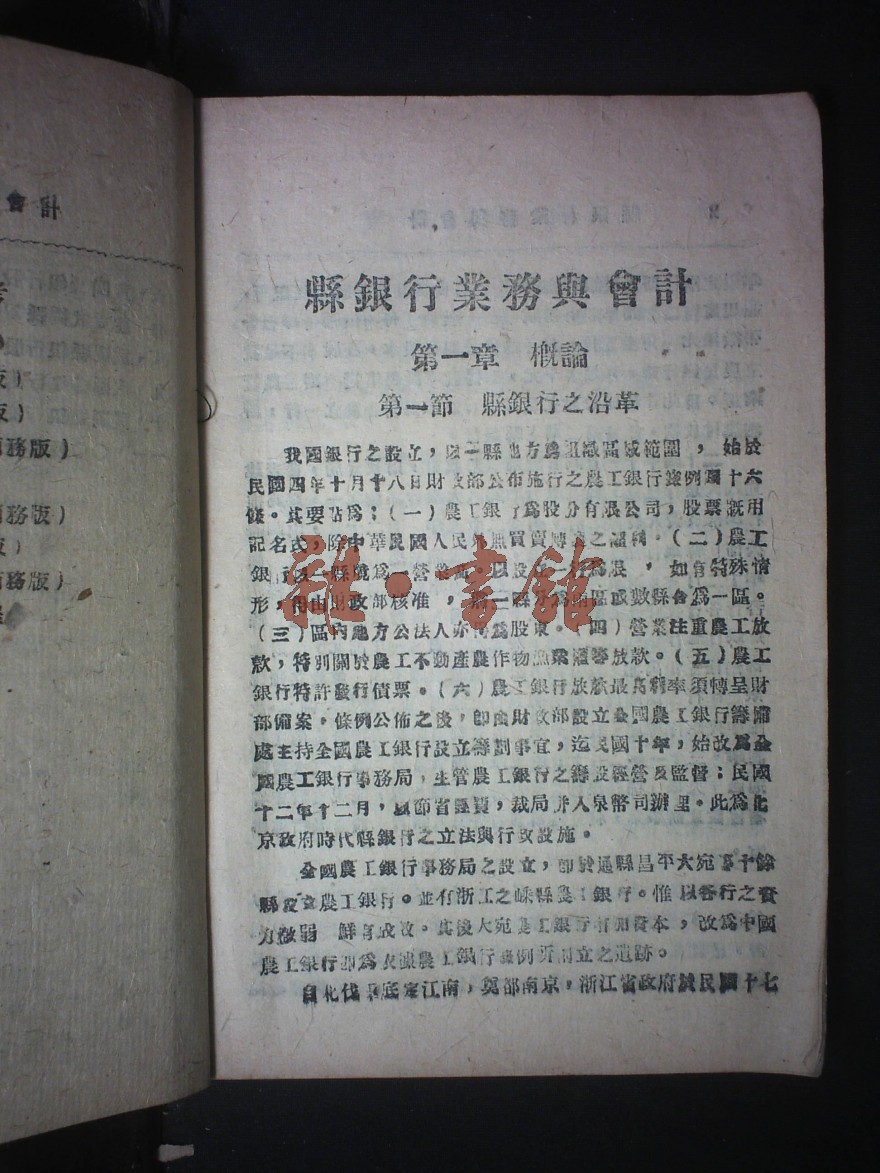 會計
版）
版）
商務版）
商務版）
版）
商務版）
縣銀行業務與會計
第一章　概論
第一節　縣銀行之沿革
我國銀行之設立，以一縣地方爲組織區域範圍，始於
民國四年十月十八日財政部公布施行之農工銀行條例四十六
條。其要點爲：（一）農工銀行爲股分有限公司，股票概用
記名式，除中華民國人民外無買賣轉讓之權利。（二）農工
銀行以一縣境爲一營業區。以設立一行爲限，如有特殊情
形，得由財政部核准，將一縣分爲兩區或數縣合爲一區。
（三）區內地方公法人亦得爲股東。（四）營業注重農工放
款，特別關於農工不動產農作物漁業權等放款。（五）農工
銀行特許發行債票。（六）農工銀行放款最高利率須轉呈財
部備案。條例公佈之後，卽由財政部設立全國農工銀行籌備
處主持全國農工銀行設立籌劃事宜，迄民國十年，始改爲全
國農工銀行事務局，主管農工銀行之籌設經營及監督；民國
十二年十二月，以節省經費，裁局并入泉幣司辦理。此爲北
京政府時代縣銀行之立法與行政設施。
全國農工銀行事務局之設立，卽於通縣昌平大宛等十餘
縣設立農工銀行。並有浙江之嵊縣農工銀行。惟以各行之資
力微弱　鮮有成效。其後大宛農工銀行增加資本，改爲中國
農工銀行卽爲依據農工銀行條例所創立之遺跡。
自北伐底定江南，奠都南京，浙江省政府於民國十七
雜·書館